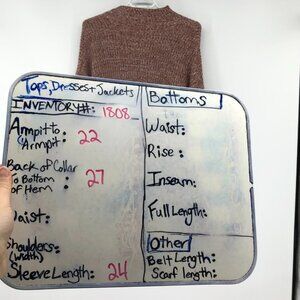 Tops, Dresses + Jackets
INVENTORY#: 1808
Armpit to Armpit: 22
Back of Collar
To Bottom of Hem: 27
Waist:
Shoulders:
(width)
Sleeve Length: 24
Bottoms
Waist:
Rise:
Inseam:
Full Length:
Other
Belt Length:
Scarf length: